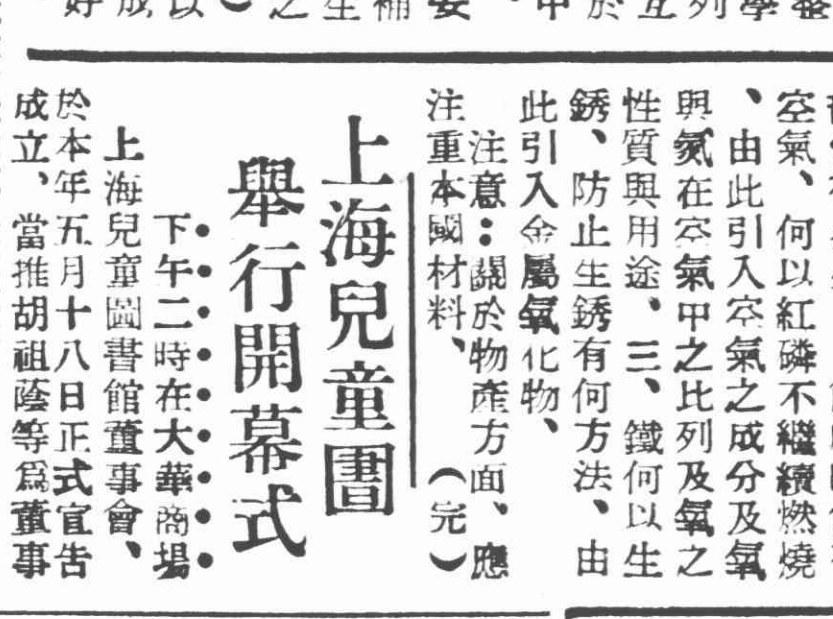 空氣、何以紅磷不繼續燃燒
、由此引入空氣之成分及氧
與氮在空氣中之比列及氧之
性質與用途、三、鐵何以生
銹、防止生銹有何方法、由
此引入金屬氧化物、
注意:關於物產方面、應
注重本國材料、(完)
上海兒童圕
舉行開幕式
下午二時在大華商場
上海兒童圖書館董事會、
於本年五月十八日正式宣告
成立、當推胡祖蔭等爲董事